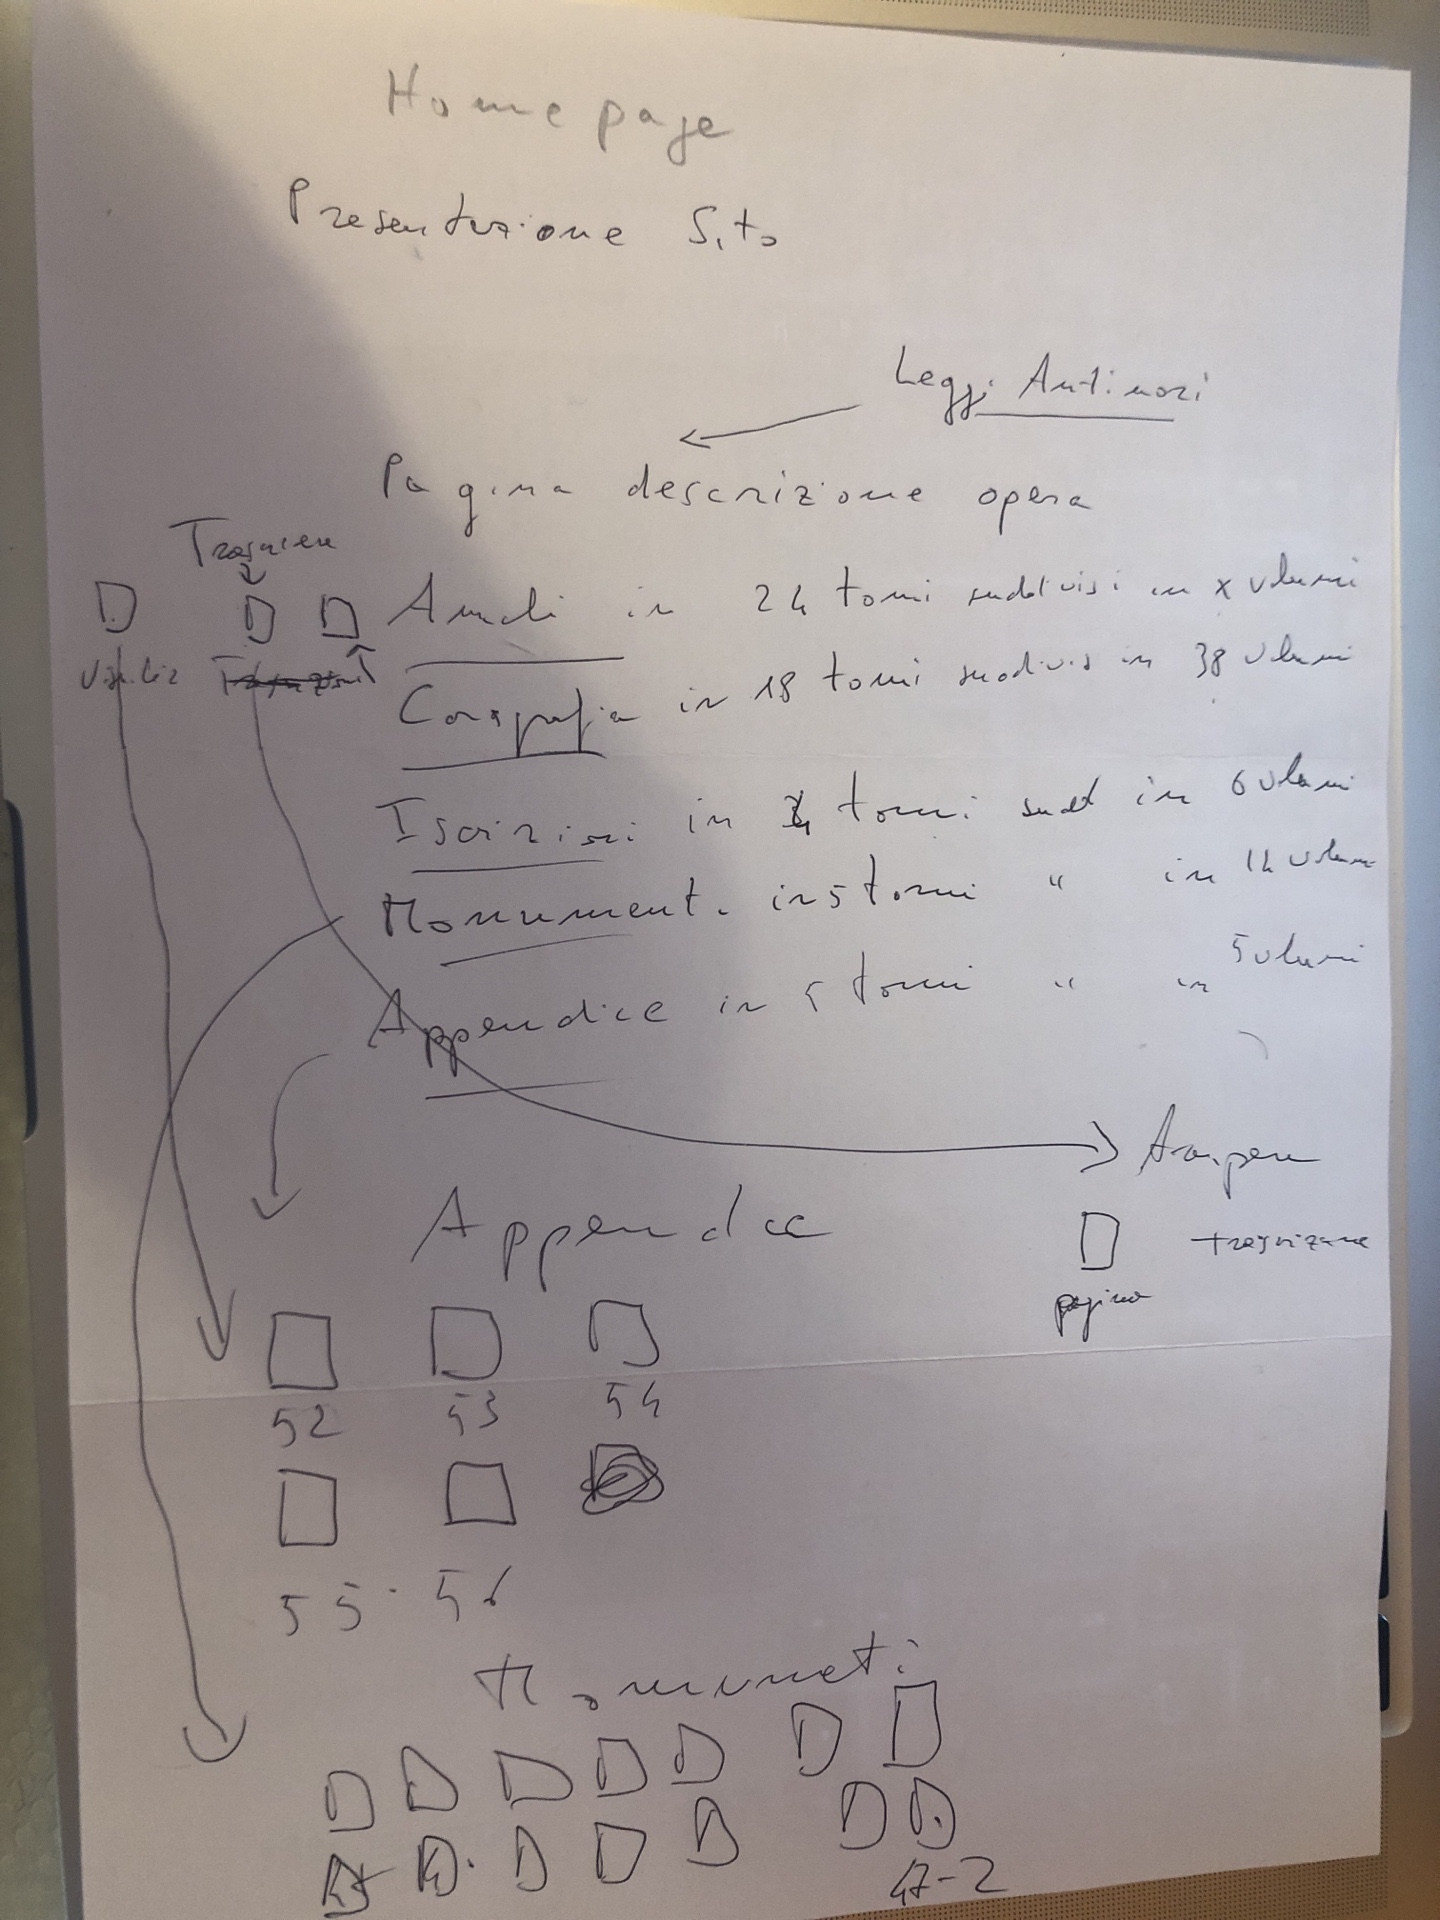 Home page
Presentazione Sito
Leggi Antinori
Pagina descrizione opera
Annali in 24 tomi suddivisi in x volumi
Corografia in 18 tomi suddivis in 38 volumi
Iscrizioni in 4 tomi sudd in 6 volumi
Monumenti in 5 tomi " in 14 volumi
Appendice in 5 tomi " in 5 volumi
pagina
Appendice
52 53 54
55 56
Monumeti
47-2